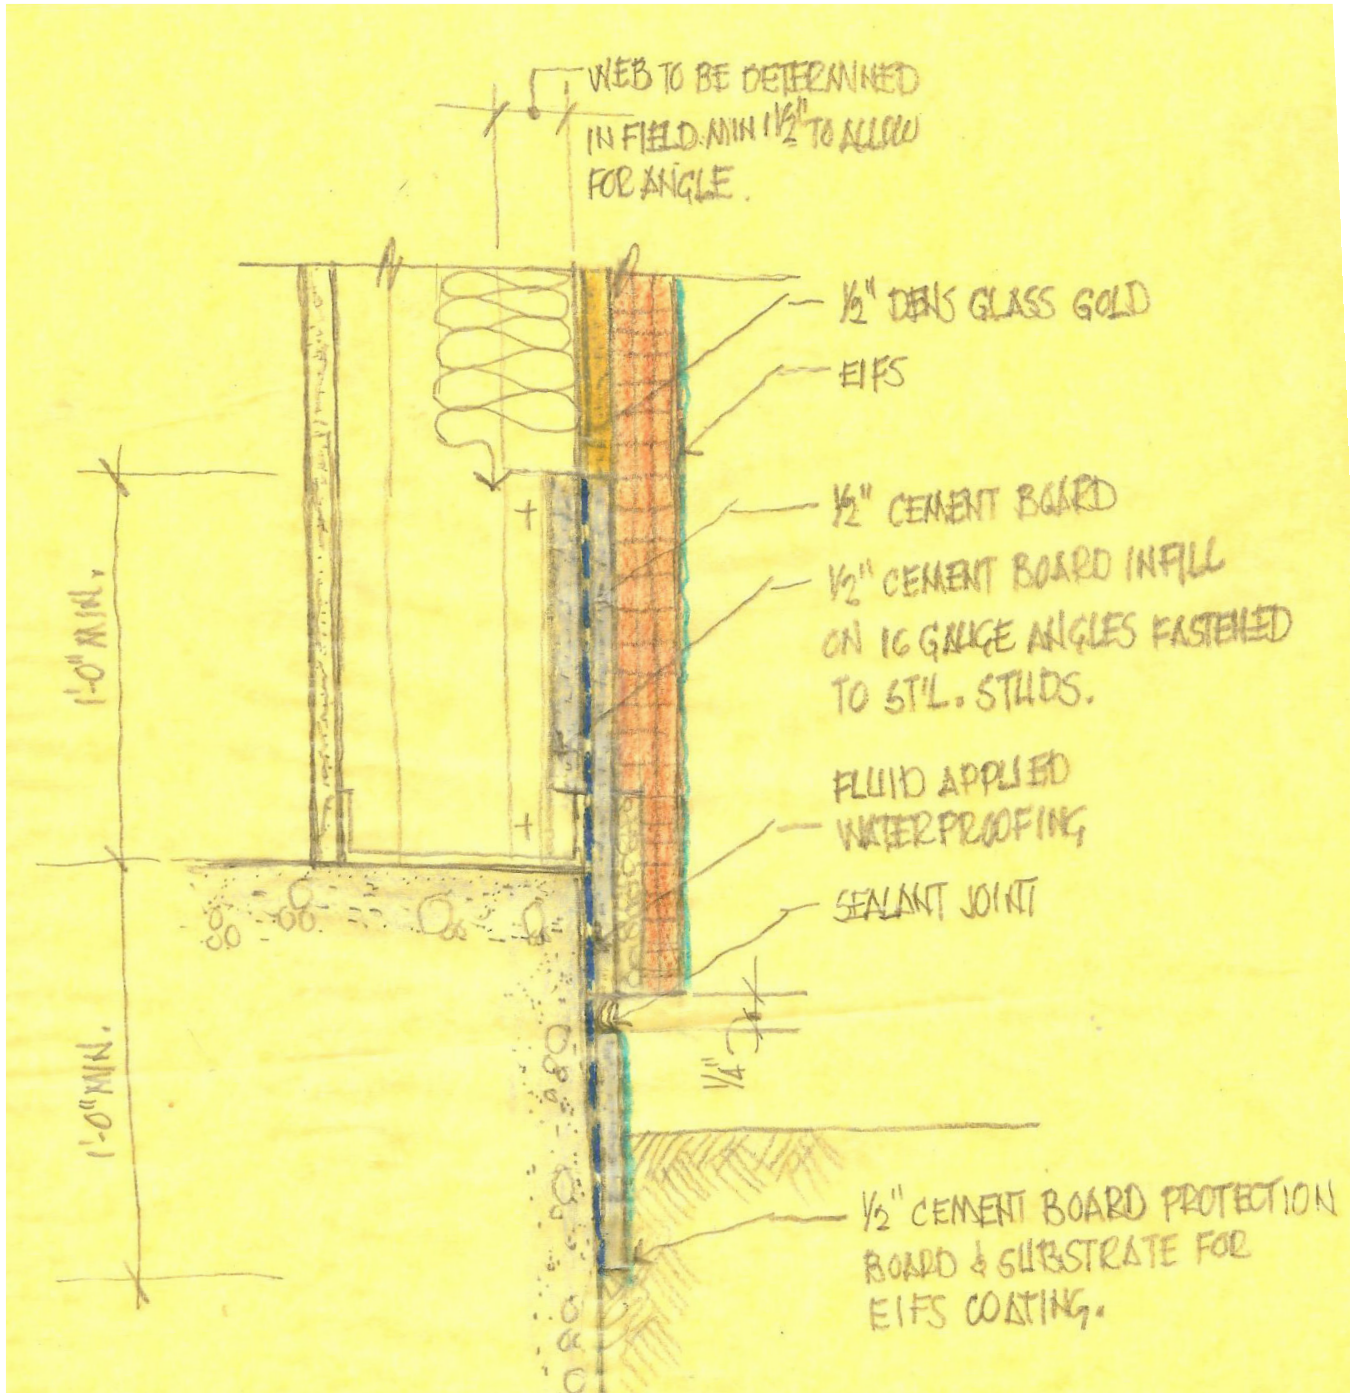 WEB TO BE DETERMINED
IN FIELD. MIN 1 1/2" TO ALLOW
FOR ANGLE.
1/2" DENS GLASS GOLD
EIFS
1/2" CEMENT BOARD
1/2" CEMENT BOARD INFILL
ON 16 GAUGE ANGLES FASTENED
TO ST'L. STUDS.
1'-0" MIN.
FLUID APPLIED
WATERPROOFING
SEALANT JOINT
1'-0" MIN.
1/4"
1/2" CEMENT BOARD PROTECTION
BOARD & SUBSTRATE FOR
EIFS COATING.